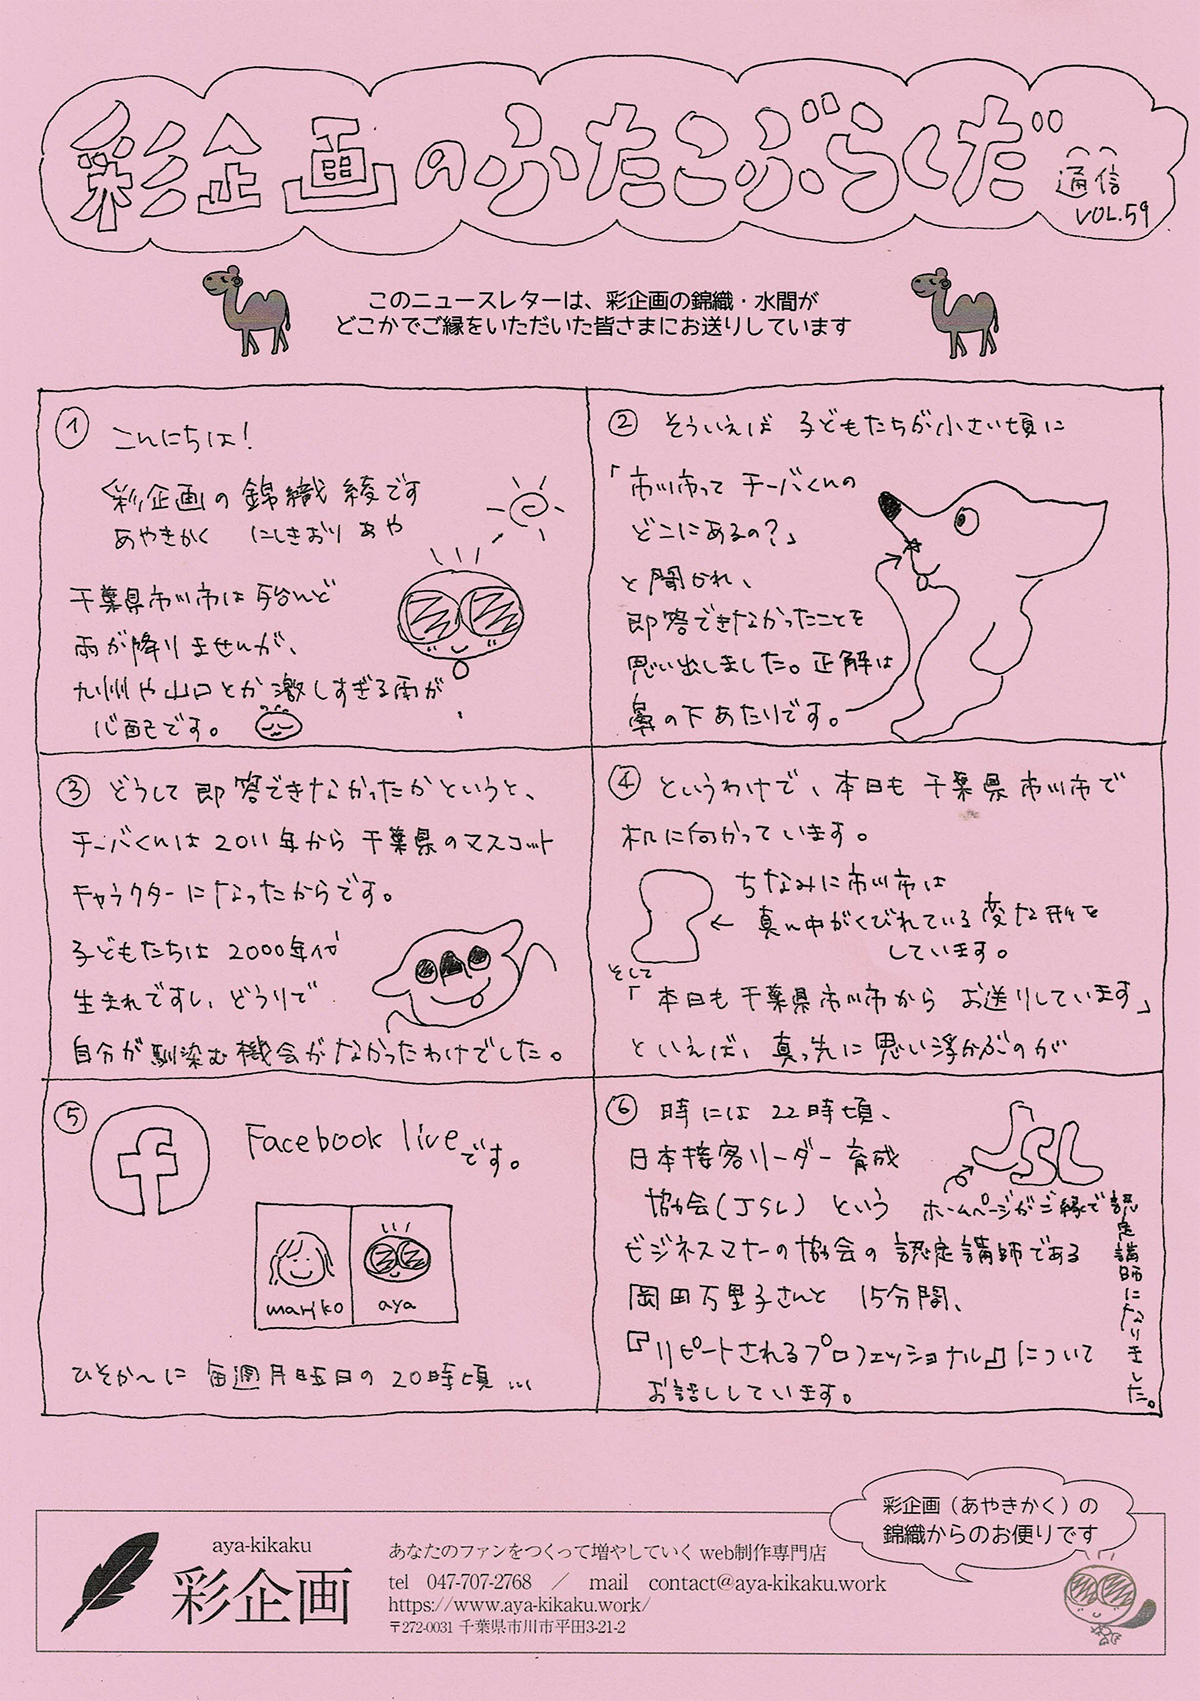 彩企画のふたこぶらくだ
通信
VOL.59
このニュースレターは、彩企画の錦織・水間が
どこかでご縁をいただいた皆さまにお送りしています
①
こんにちは!
彩企画の錦織 綾です
あやきかく にしきおり あや
千葉県市川市は殆んど
雨が降りませんが、
九州や山口とか激しすぎる雨が
心配です。
② そういえば 子どもたちが小さい頃に
「市川市って チーバくんの
どこにあるの?」
と聞かれ、
即答できなかったことを
思い出しました。正解は
鼻の下あたりです。
③ どうして即答できなかったかというと、
チーバくんは2011年から千葉県のマスコット
キャラクターになったからです。
子どもたちは2000年代
生まれですし、どうりで
自分が馴染む機会がなかったわけでした。
④ というわけで、本日も千葉県市川市で
机に向かっています。
ちなみに市川市は
← 真ん中がくびれている変な形を
しています。
そして
「本日も千葉県市川市から お送りしています」
といえば、真っ先に思い浮かぶのが
⑤
f
Facebook liveです。
mariko
aya
ひそか〜に 毎週月曜日の20時頃…
⑥ 時には22時頃、
日本接客リーダー育成
協会(JSL)という
ビジネスマナーの協会の認定講師である
岡田万里子さんと 15分間、
『リピートされるプロフェッショナル』について
お話ししています。
JSL
ホームページがご縁で認定講師になりました。
彩企画(あやきかく)の
錦織からのお便りです
aya-kikaku
彩企画
あなたのファンをつくって増やしていく web制作専門店
tel 047-707-2768 / mail contact@aya-kikaku.work
https://www.aya-kikaku.work/
〒272-0031 千葉県市川市平田3-21-2